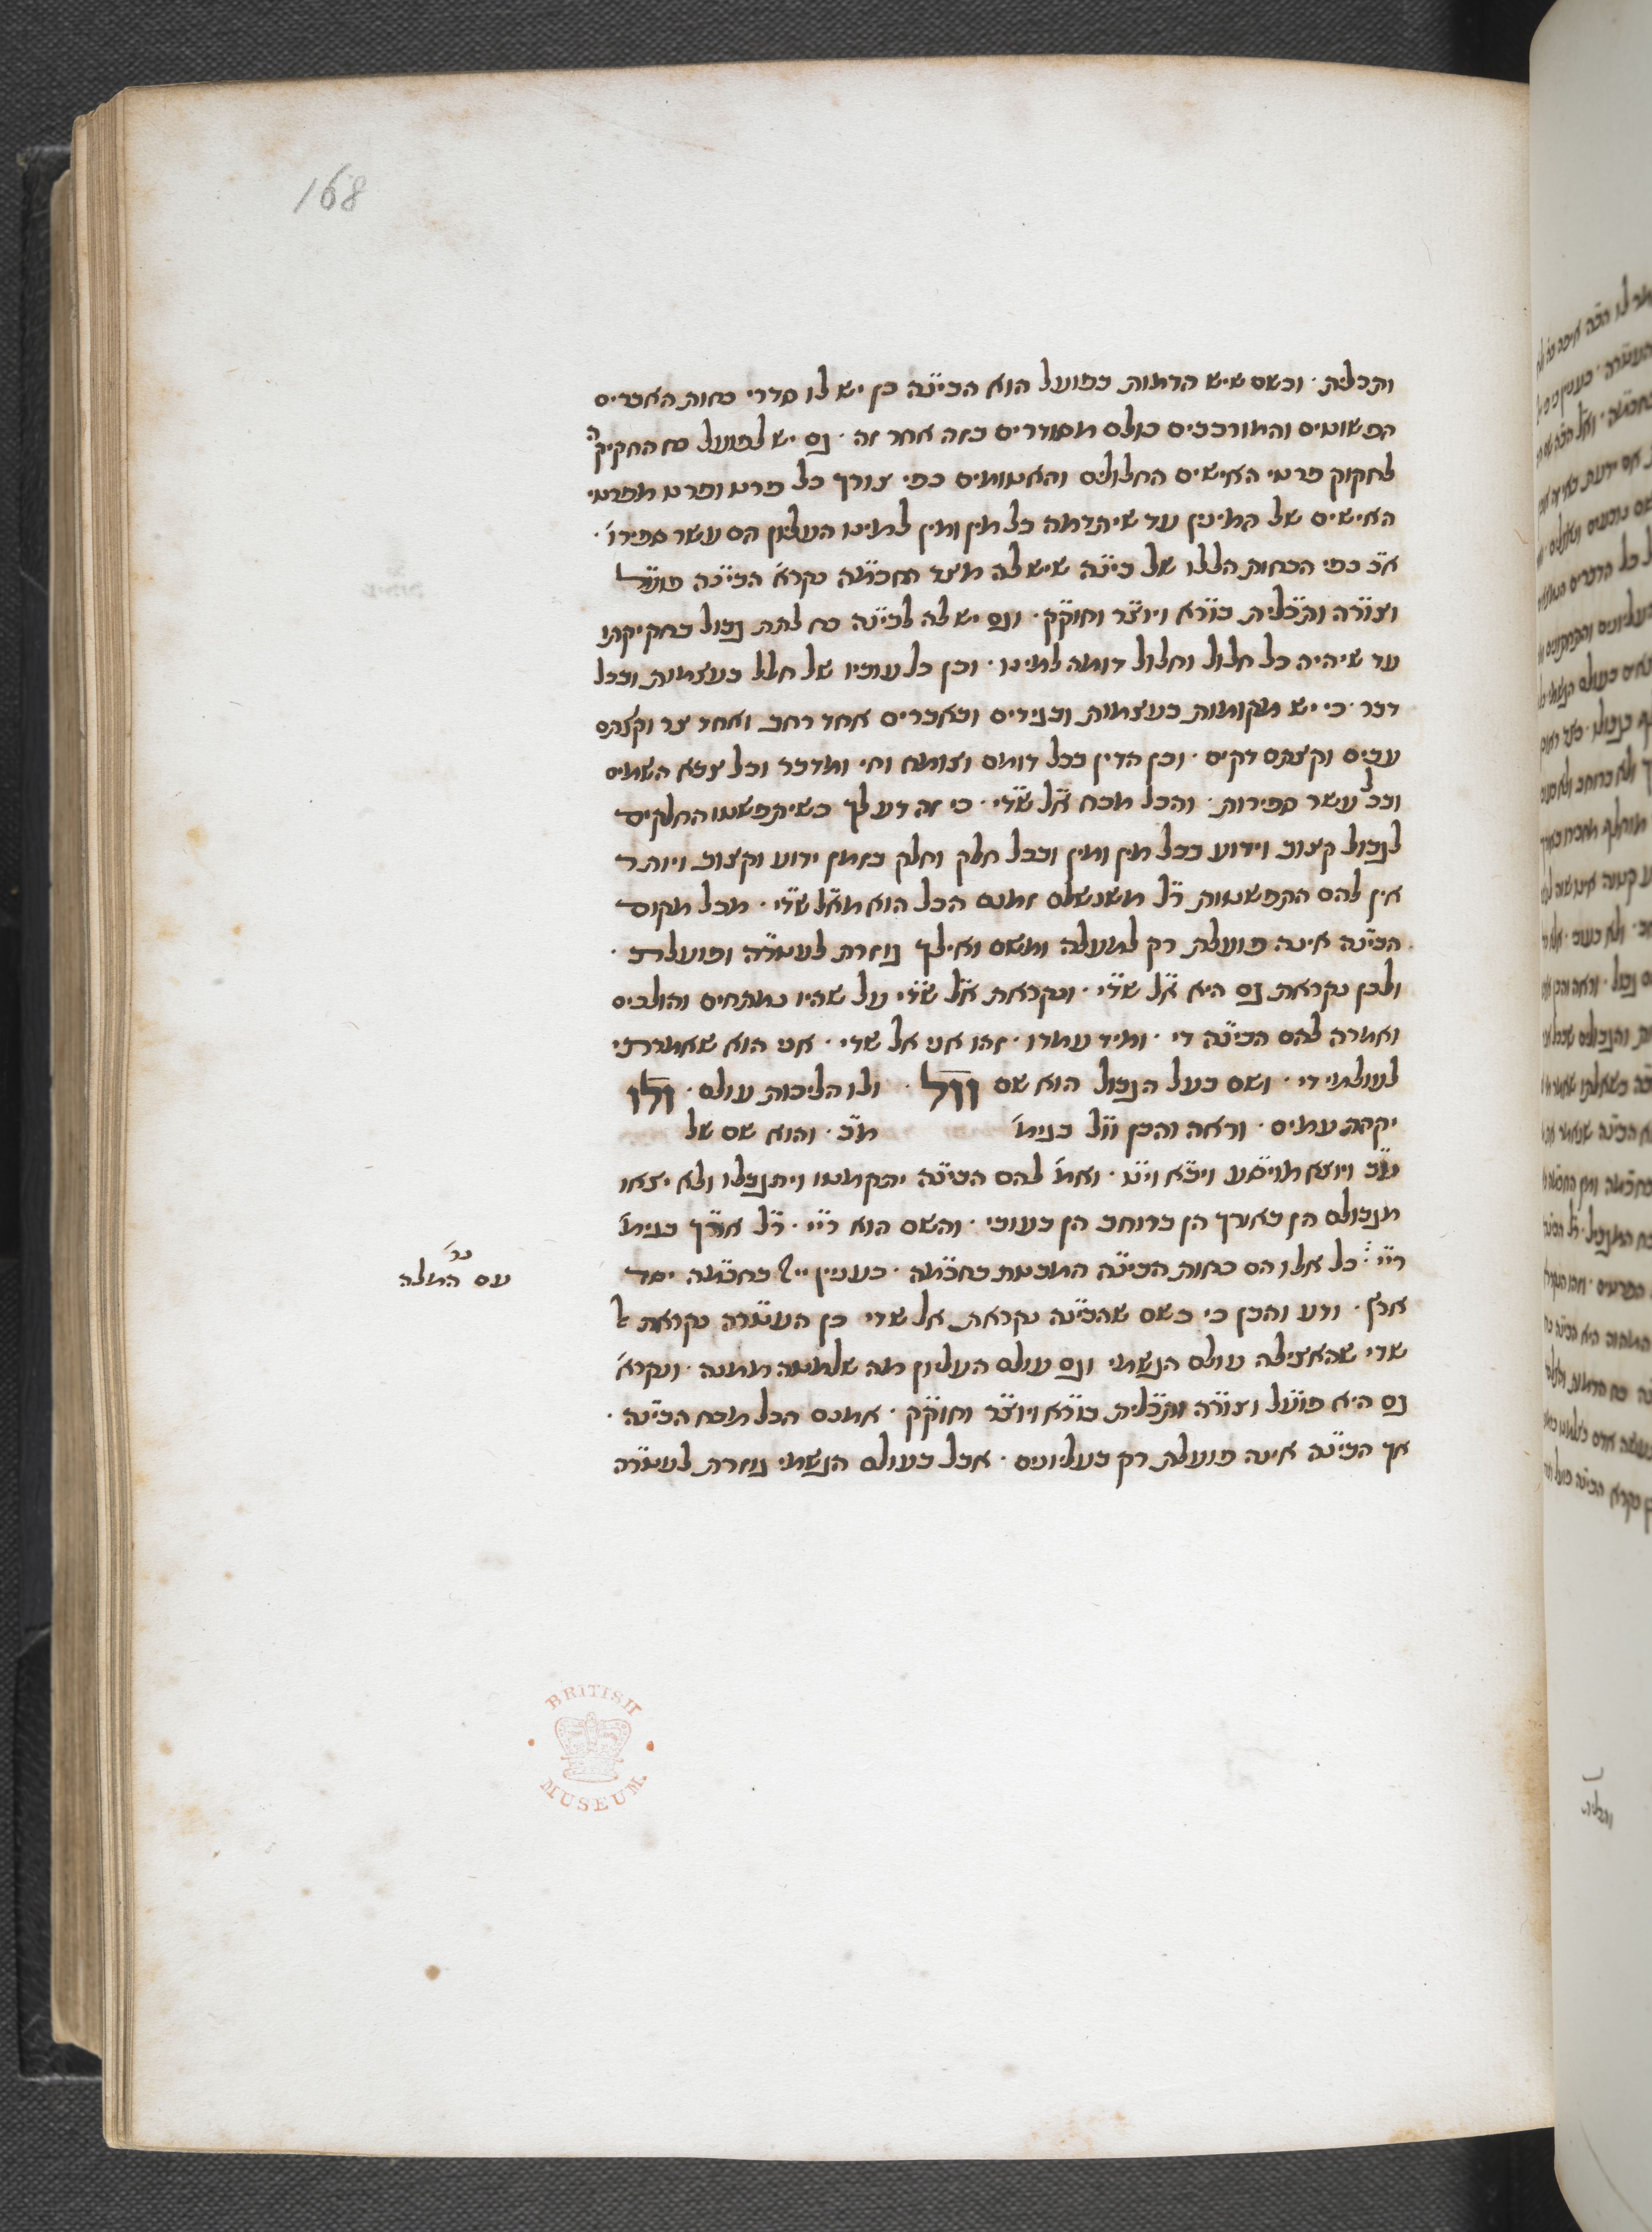 168
ותכלית · וכשם שיש הדמות בפועל הוא הבינה כן יש לו סדרי כחות האברים
הפשוטים והמורכבים כולם מסודרים בזה אחר זה · גם יש לפועל כח החקיקה
לחקוק פרטי האישים החלולים והאטומים כפי צורך כל פרט ופרט מפרטי
האישים של המינין עד שיתדמה כל מין ומין למינו העליון הם עשר ספירו׳ ·
א״כ כפי הכחות הללו של בינה שיש לה מצד החכמה נקרא׳ הבינה פועל
וצורה ותכלית בורא ויוצר וחוקק · וגם יש לה לבינה כח לתת גבול בחקיקתו
עד שיהיה כל חלול וחלול דומה למינו · וכן כל עוביו של חלל בעצמות ובכל
דבר · כי יש מקומות בעצמות ובגידים ובאברים אחד רחב ואחד צר וקצתם
עבים וקצתם דקים · וכן הדין בכל דומם וצומח וחי ומדבר וכל צבא השמים
ובכל עשר ספירות · והכל מכח אל שדי · כי זה דע לך כשיתפשטו החלקים
לגבול קצוב וידוע בכל מין ומין ובכל חלק וחלק בזמן ידוע וקצוב ויותר
אין להם התפשטות ר״ל משנשלם זמנם הכל הוא מאל שדי · מכל מקום
הבינה אינה פועלת רק למעלה ומשם ואילך גוזרת לעטרה ופועלת ·
ולכן נקראת גם היא אל שדי · ונקראת אל שדי על שהיו נמתחים והולכים
ואמרה להם הבינה די · ומיד עמדו · זהו אני אל שדי · אני הוא שאמרתי
לעולמי די · ושם בעל הגבול הוא שם וול · ולו הליכות עולם · ולו
יקהת עמים · וראה והבן וול בגימ׳ מ״ב · והוא שם של
ע״ב ויוצא מויסע ויבא ויט · ואמ׳ להם הבינה יתקמטו ויתגבלו ולא יצאו
מגבולם הן באורך הן ברוחב הן בעובי · והשם הוא ריי · ר״ל אורך בגימ׳
ריי · כל אלו הם כחות הבינה המבטת בחכמה · כענין ייי בחכמה יסד
ארץ · ודע והבן כי כשם שהבינה נקראת אל שדי כן העטרה נקראת אל
שדי שהאצילה עולם הגשמי וגם עולם העליון מה שלמטה ממנה · ונקרא׳
גם היא פועל וצורה ותכלית בורא ויוצר וחוקק · אמנם הכל מכח הבינה ·
אך הבינה אינה פועלת רק בעליונים · אבל בעולם הגשמי גוזרת לעטרה
נר׳
עם המלה
BRITISH
MUSEUM